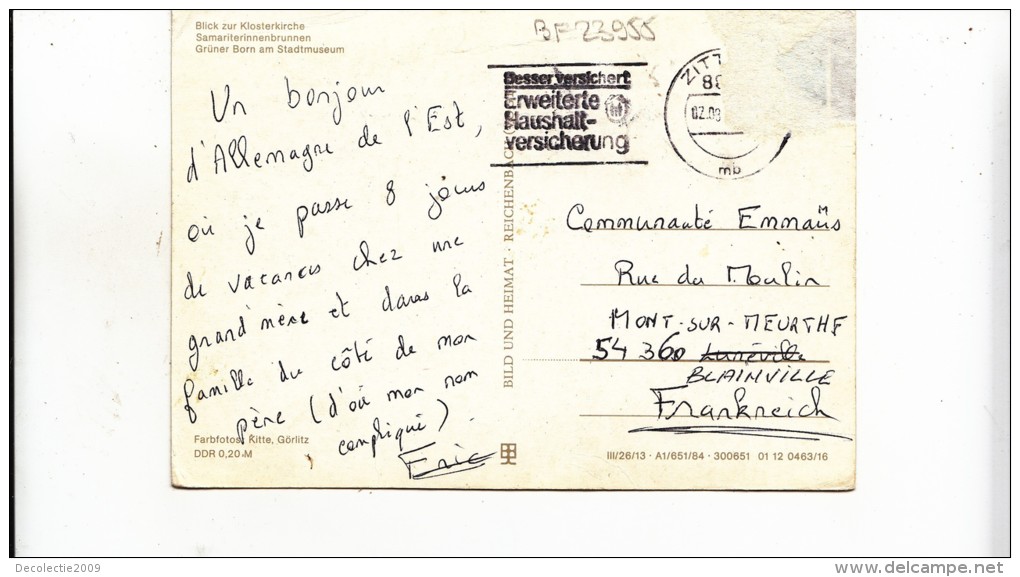 Blick zur Klosterkirche
Samariterinnenbrunnen
Grüner Born am Stadtmuseum
BF 23955
Besser versichert
Erweiterte
Haushalt-
versicherung
ZITT
02.09
mb
Un bonjour
d'Allemagne de l'Est,
où je passe 8 jours
de vacances chez une
grand mère et dans la
famille du côté de mon
père (d'où mon nom
compliqué)
Eric
Farbfotos: Kitte, Görlitz
DDR 0,20 M
BILD UND HEIMAT · REICHENBACH
Communauté Emmaüs
Rue du Moulin
MONT-SUR-MEURTHE
54 360 Lunéville
BLAINVILLE
Frankreich
III/26/13 · A1/651/84 · 300651 01 12 0463/16
Decolectie2009
delcampe.net